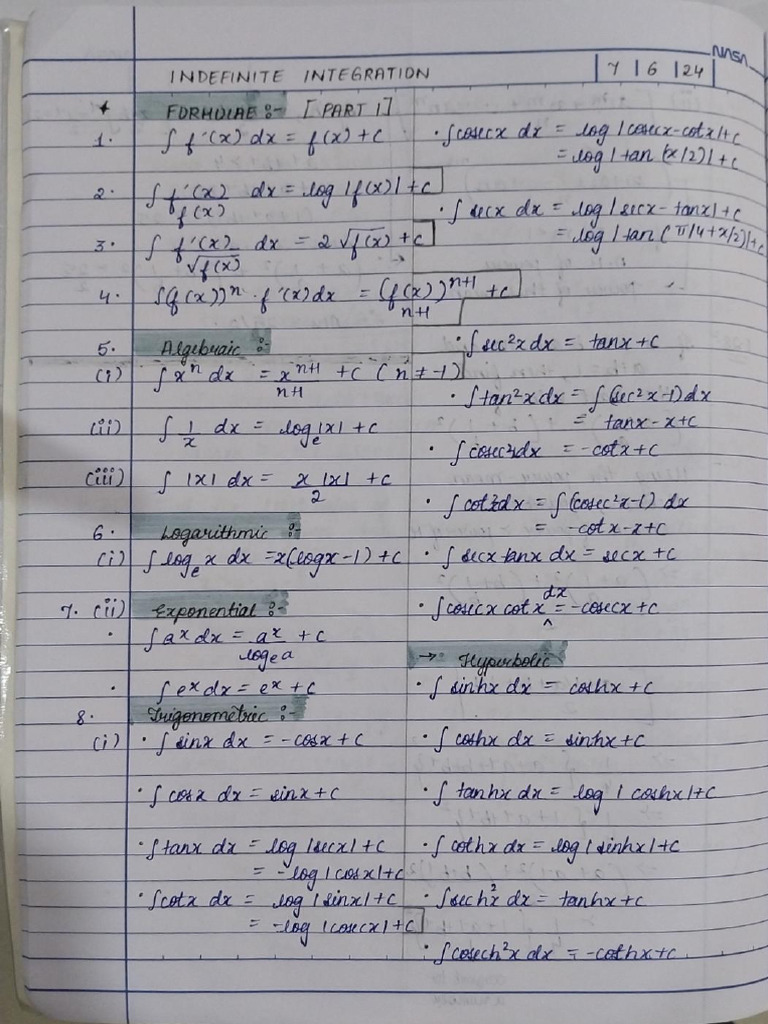 NASA
INDEFINITE INTEGRATION | 7 | 6 | 24 |
* FORMULAE :- [PART 1]
1. ∫ f'(x) dx = f(x) + c
2. ∫ f'(x)/f(x) dx = log |f(x)| + c
3. ∫ f'(x)/√f(x) dx = 2 √f(x) + c
4. ∫(f(x))ⁿ · f'(x) dx = (f(x))ⁿ⁺¹/n+1 + c
5. Algebraic :-
(i) ∫ xⁿ dx = xⁿ⁺¹/n+1 + c (n ≠ -1)
(ii) ∫ 1/x dx = logₑ|x| + c
(iii) ∫ |x| dx = x |x|/2 + c
6. Logarithmic :-
(i) ∫ logₑ x dx = x(logx - 1) + c
7. (ii) Exponential :-
· ∫ aˣ dx = aˣ/logₑa + c
· ∫ eˣ dx = eˣ + c
8. Trigonometric :-
(i) · ∫ sinx dx = -cosx + c
· ∫ cosx dx = sinx + c
· ∫ tanx dx = log |secx| + c
= -log |cosx| + c
· ∫ cotx dx = log |sinx| + c
= -log |cosecx| + c
· ∫ cosecx dx = log |cosecx - cotx| + c
= log |tan (x/2)| + c
· ∫ secx dx = log |secx - tanx| + c
= log |tan (π/4 + x/2)| + c
· ∫ sec²x dx = tanx + c
· ∫ tan²x dx = ∫ (sec²x - 1) dx
= tanx - x + c
· ∫ cosec²x dx = -cotx + c
· ∫ cot²x dx = ∫ (cosec²x - 1) dx
= -cotx - x + c
· ∫ secx tanx dx = secx + c
· ∫ cosecx cotx dx = -cosecx + c
→ Hyperbolic
· ∫ sinhx dx = coshx + c
· ∫ coshx dx = sinhx + c
· ∫ tanhx dx = log | coshx | + c
· ∫ cothx dx = log | sinhx | + c
· ∫ sech²x dx = tanhx + c
· ∫ cosech²x dx = -cothx + c